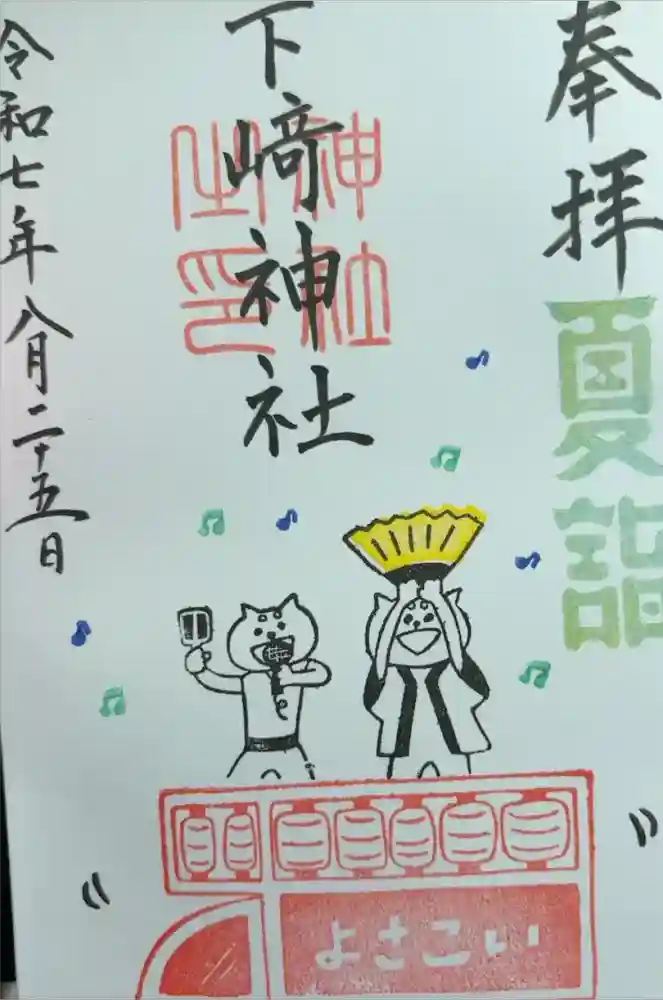 奉拝
夏詣
下﨑神社
神社之印
令和七年八月二十五日
よさこい